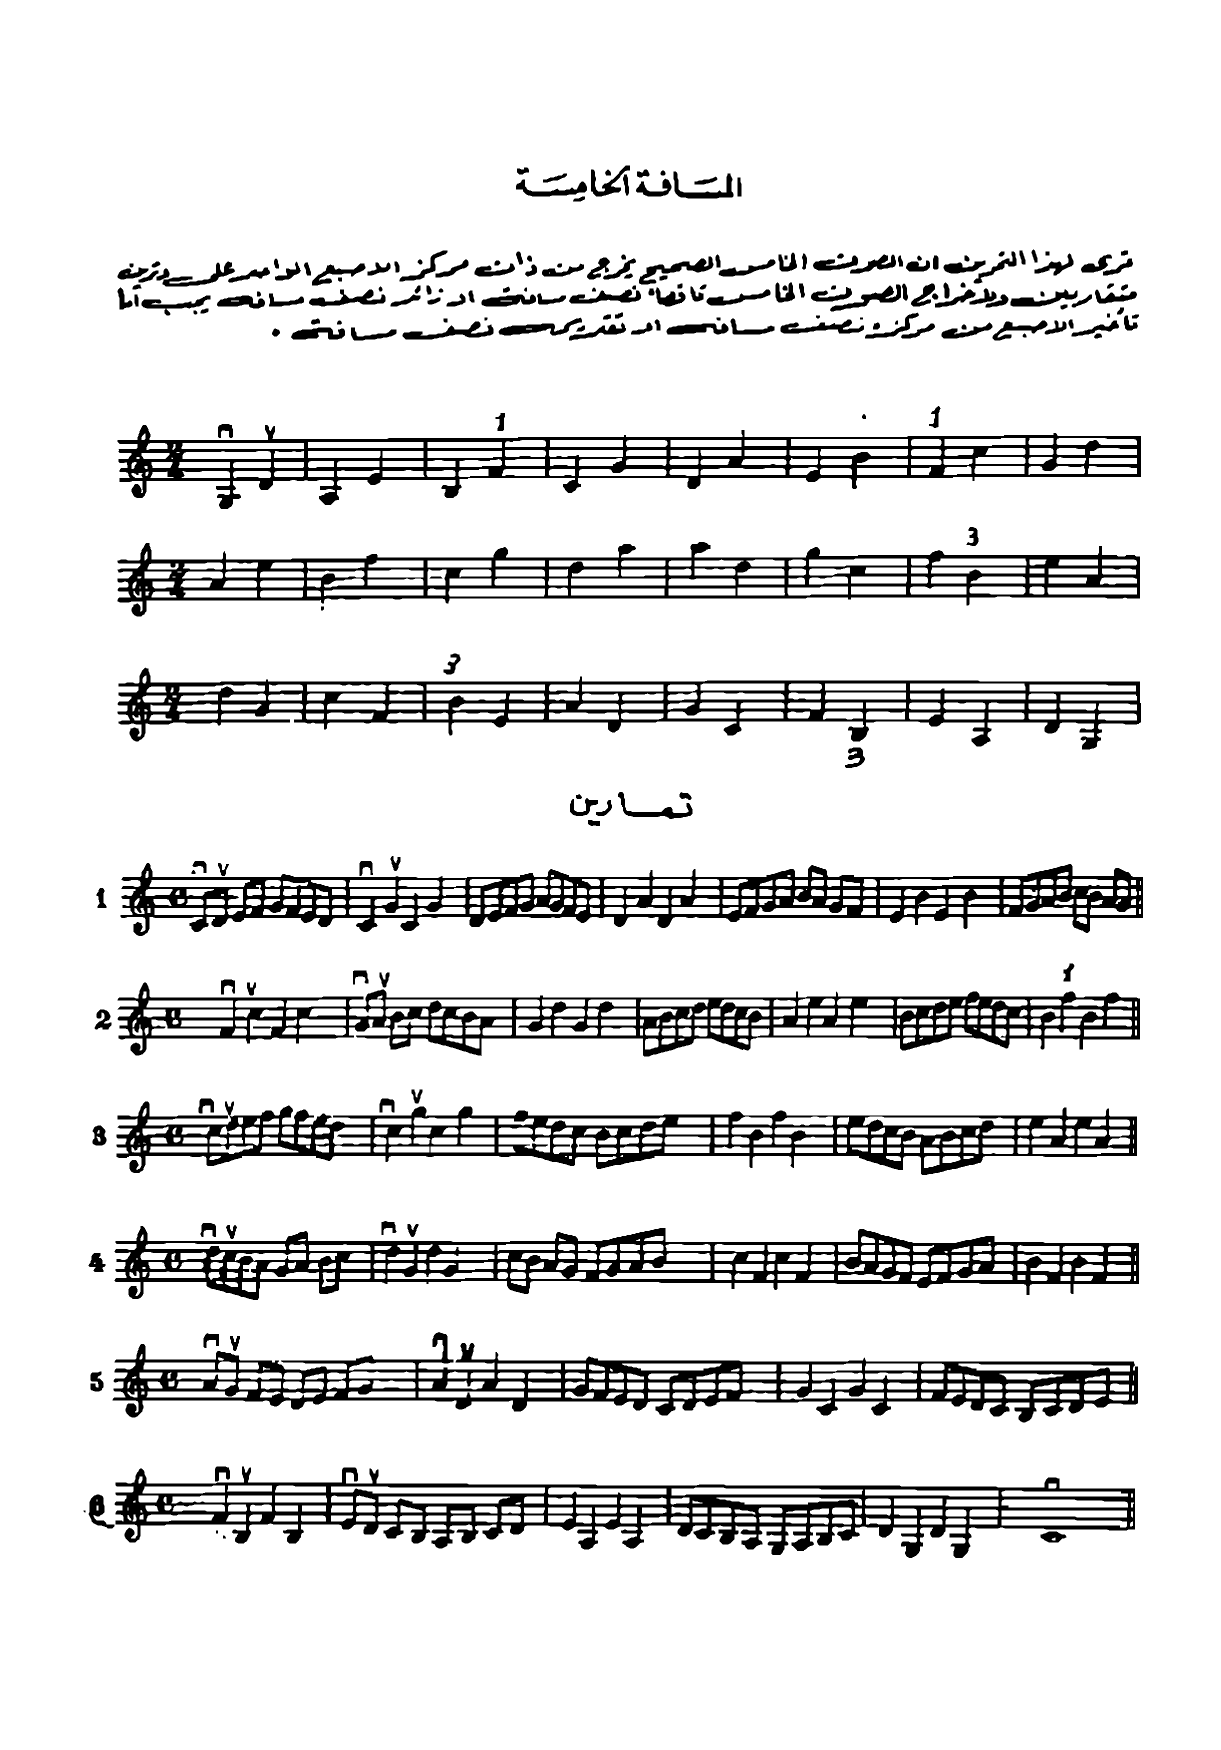 المسافة الخامسة
ترى لهذا التمرين ان الصوت الخامس الصحيح يخرج من ذات مركز الاصبع الواحد على وترين
متقاربين ولأخراج الصوت الخامس ناقصاً نصف مسافة او زائد نصف مسافة يجب أما
تأخير الاصبع من مركزه نصف مسافة او تقديمه نصف مسافة .
1 1
3
3
3
تمارين
1
2 1
3
4
5
6